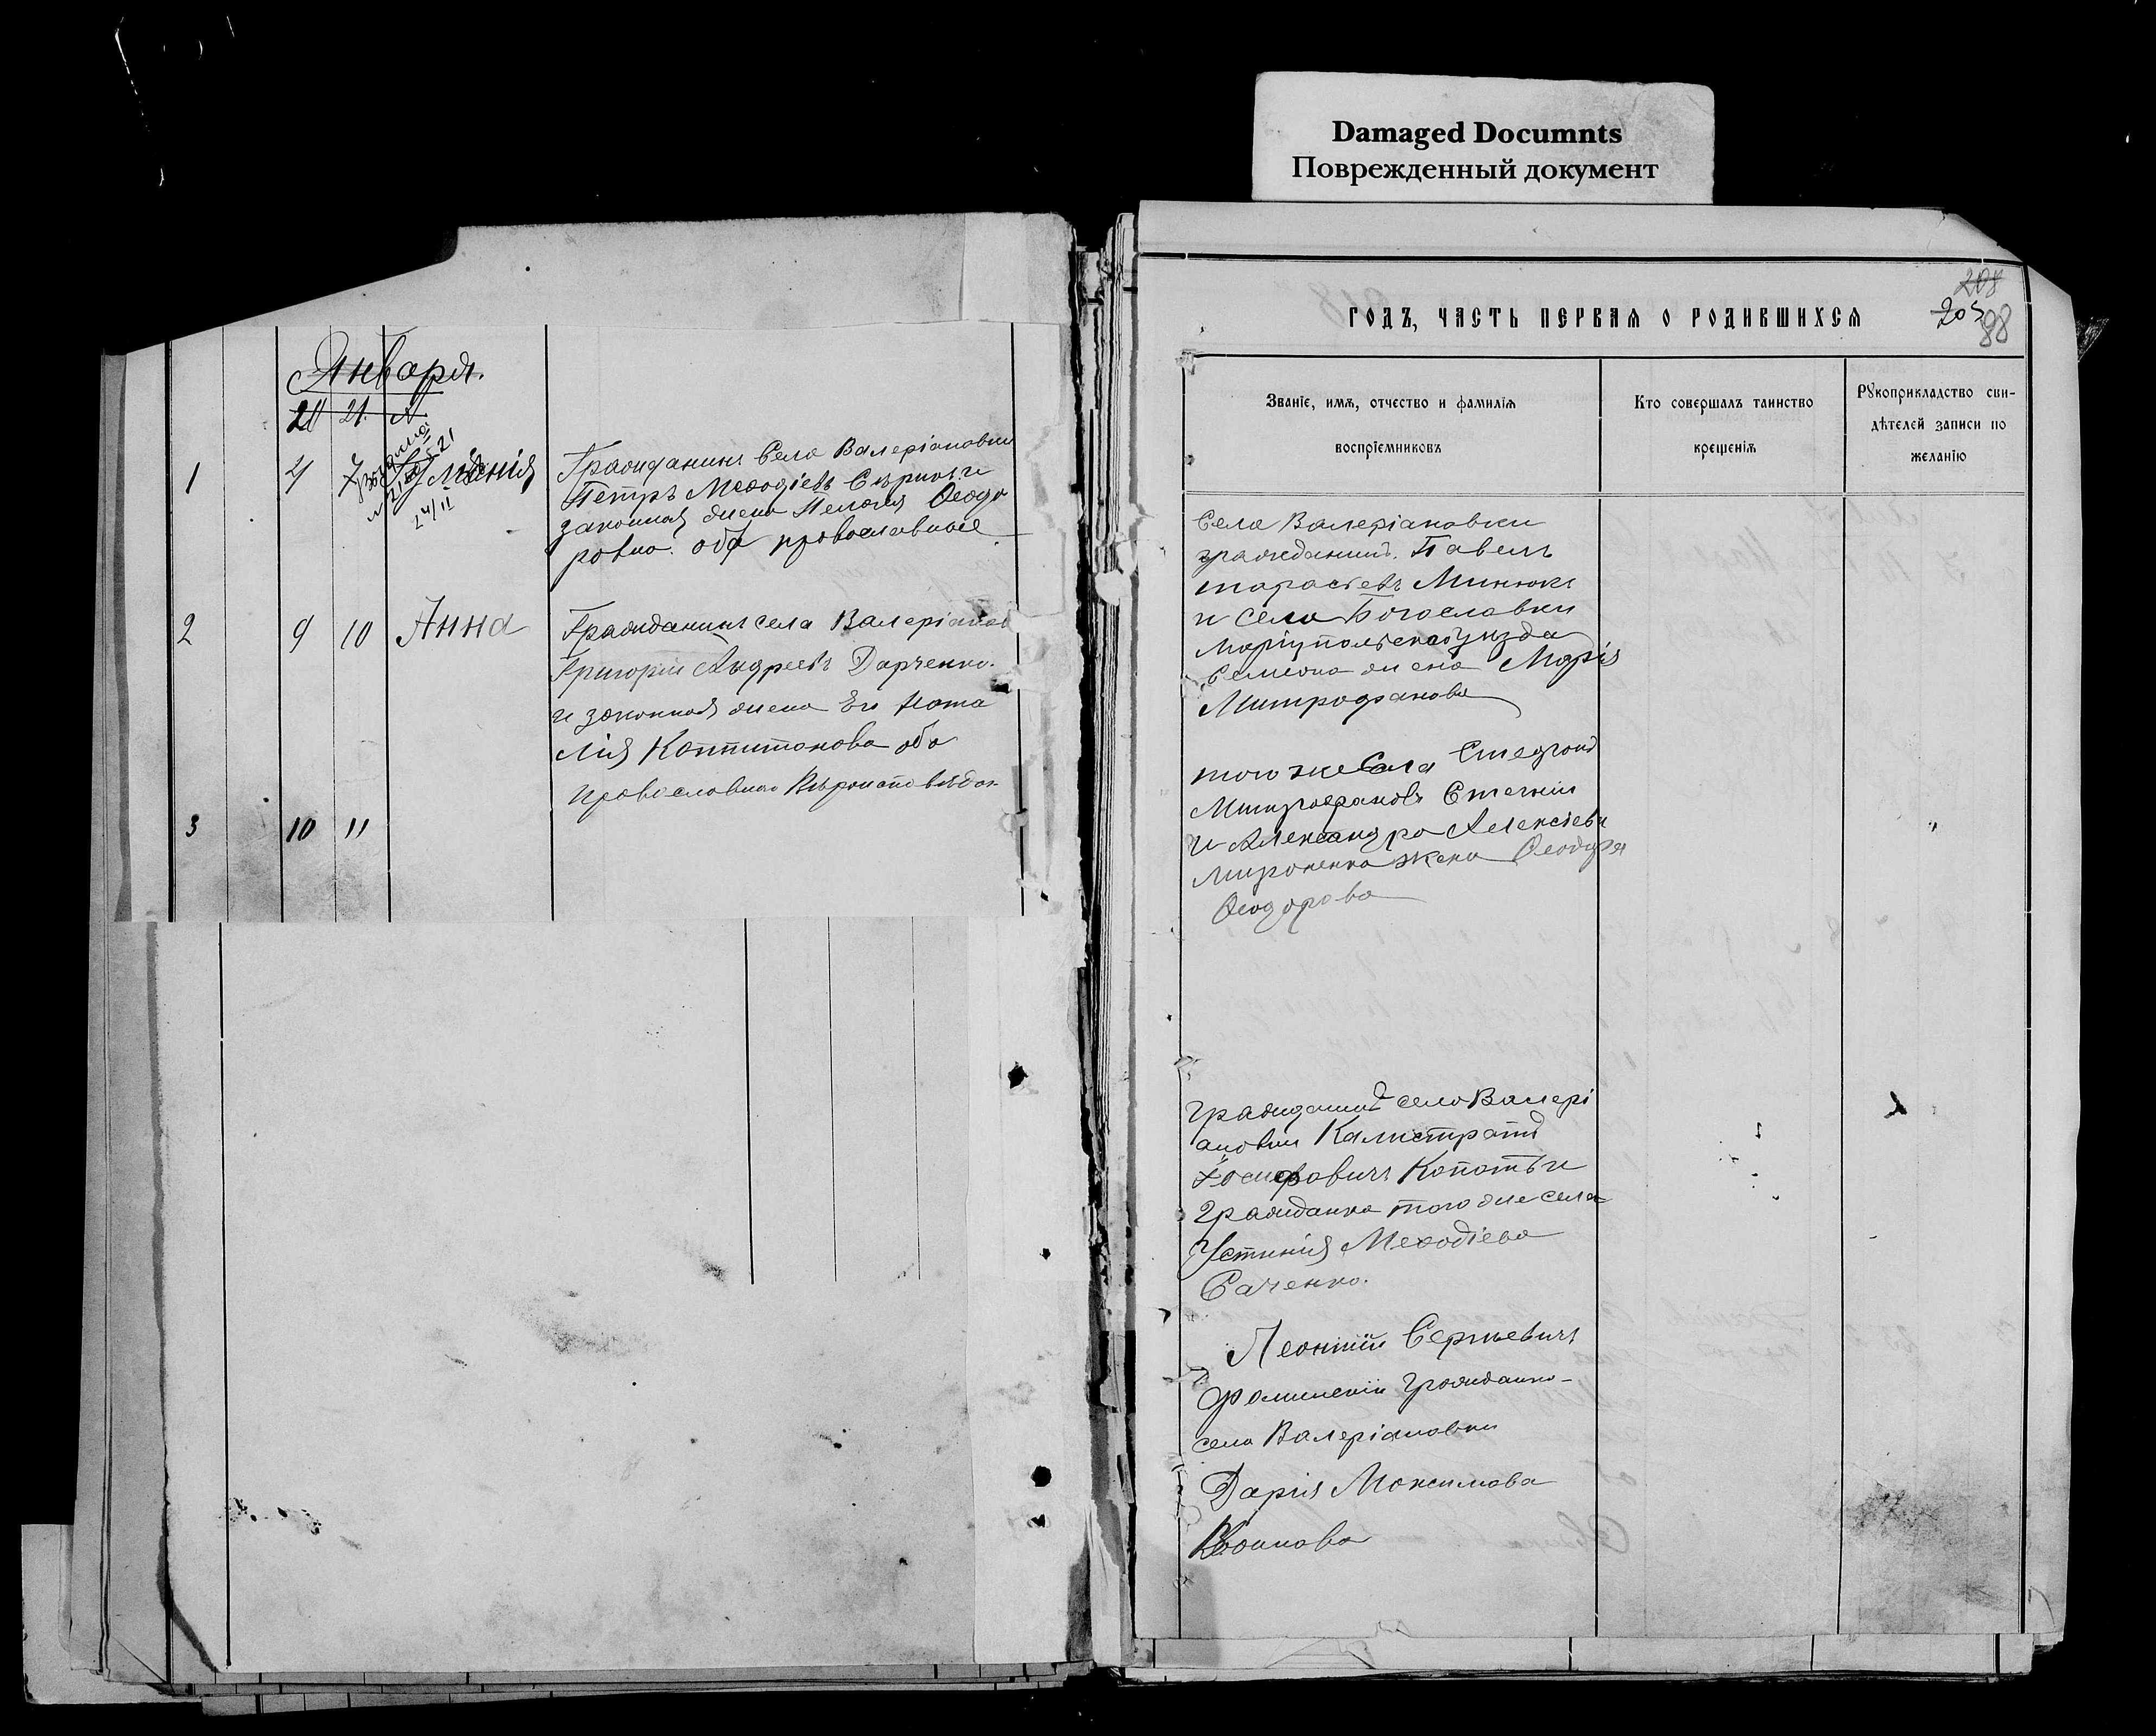 Damaged Documnts
Поврежденный документ
Января.
20 21. N.
1
4
7
24/II
Гражданинъ села Валеріановки
Петръ Меѳодіевъ
законная жена Ѳеодо
ровна. оба православные
2
9
10
Анна
Гражданинъ села Валеріанов
Григорій Андреевъ Дарченко.
и законная жена Его Ната
лія Коппитонова оба
православнаго
3
10
11
208
205
98
ГОДЪ, ЧАСТЬ ПЕРВАЯ О РОДИВШИХСЯ
Званіе, имя, отчество и фамилія
воспріемниковъ
Кто совершалъ таинство
крещенія
Рукоприкладство сви-
дѣтелей записи по
желанію
Села Валеріановки
гражданинъ. Павелъ
тарасіевъ Минюкъ
и села Богославки
Маріупольскаго уѣзда
жена Марія
Митрофанова
того же Села
Митрофановъ
и Александра Алексіевъ
Мироненка жена Ѳеодора
Ѳеодорова
гражданинъ села Валері
ановки Калистратъ
Іосифовичъ Копоть и
гражданка того же села
Устинія Меѳодіева
Саченко.
Леонтій Сергіевичъ
Фоминскій гражданка-
села Валеріановки
Дарія Максимова